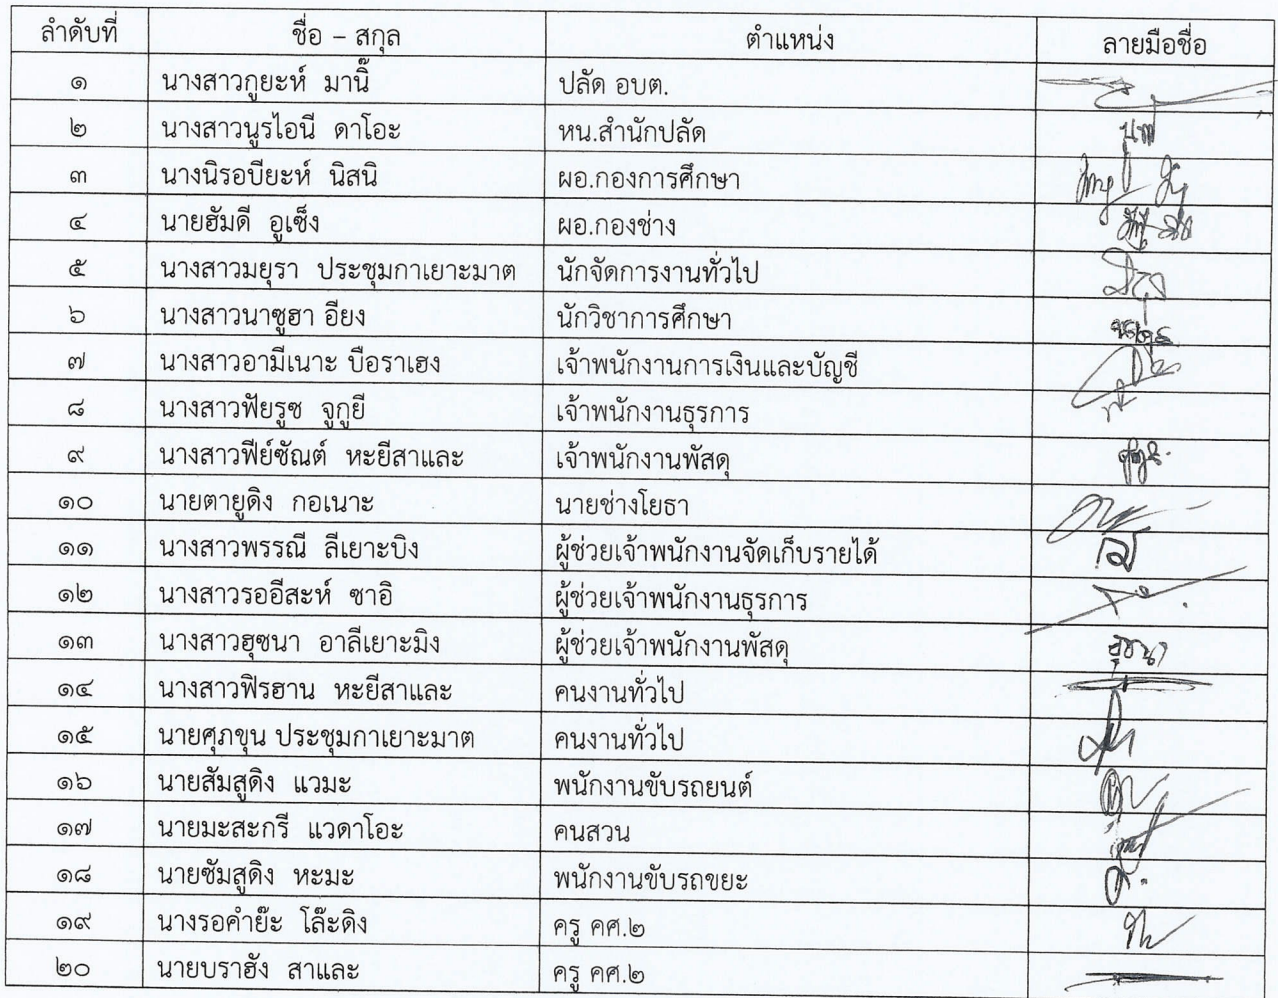 ลำดับที่ ชื่อ – สกุล ตำแหน่ง ลายมือชื่อ
๑ นางสาวกูยะห์ มานิ๊ ปลัด อบต.
๒ นางสาวนูรไอนี ดาโอะ หน.สำนักปลัด
๓ นางนิรอบียะห์ นิสนิ ผอ.กองการศึกษา
๔ นายฮัมดี อูเซ็ง ผอ.กองช่าง
๕ นางสาวมยุรา ประชุมกาเยาะมาต นักจัดการงานทั่วไป
๖ นางสาวนาซูฮา อียง นักวิชาการศึกษา
๗ นางสาวอามีเนาะ บือราเฮง เจ้าพนักงานการเงินและบัญชี
๘ นางสาวฟัยรูซ จูกูยี เจ้าพนักงานธุรการ
๙ นางสาวฟีย์ซัณต์ หะยีสาและ เจ้าพนักงานพัสดุ
๑๐ นายตายูดิง กอเนาะ นายช่างโยธา
๑๑ นางสาวพรรณี ลีเยาะบิง ผู้ช่วยเจ้าพนักงานจัดเก็บรายได้
๑๒ นางสาวรออีสะห์ ซาอิ ผู้ช่วยเจ้าพนักงานธุรการ
๑๓ นางสาวฮุซนา อาลีเยาะมิง ผู้ช่วยเจ้าพนักงานพัสดุ ฮุซนา
๑๔ นางสาวฟิรฮาน หะยีสาและ คนงานทั่วไป
๑๕ นายศุภขุน ประชุมกาเยาะมาต คนงานทั่วไป
๑๖ นายสัมสูดิง แวมะ พนักงานขับรถยนต์
๑๗ นายมะสะกรี แวดาโอะ คนสวน
๑๘ นายซัมสูดิง หะมะ พนักงานขับรถขยะ
๑๙ นางรอคำย๊ะ โล๊ะดิง ครู คศ.๒
๒๐ นายบราฮัง สาและ ครู คศ.๒